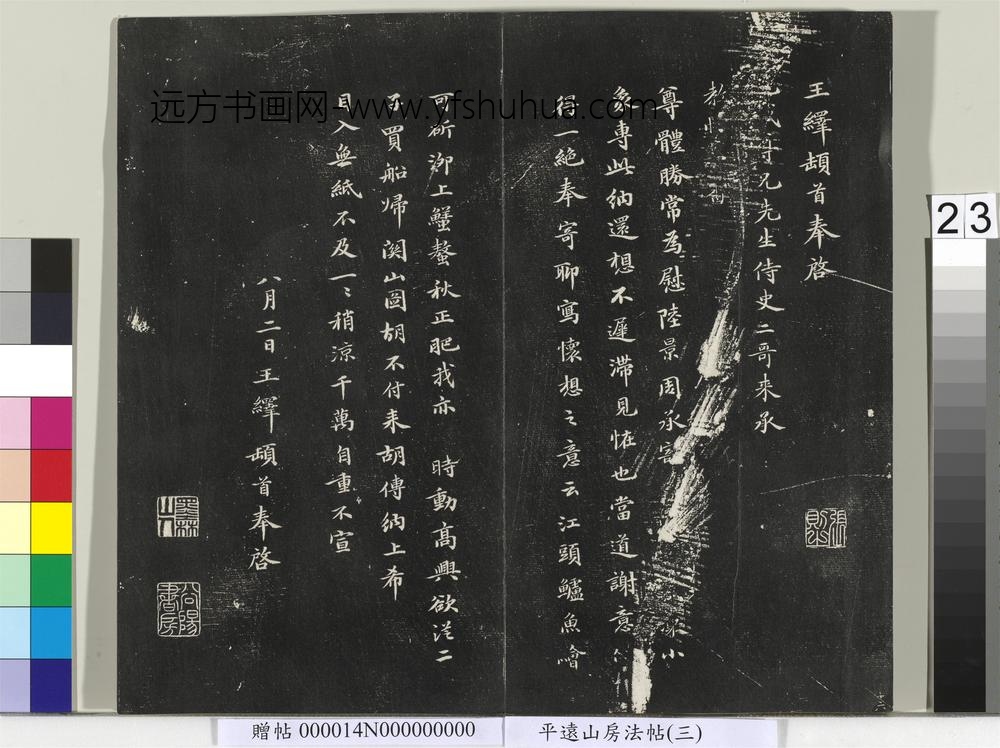 王繹頓首奉啓
兄先生侍史二哥来承
尊體勝常為慰陸景周承寄
小
多專此納還想不遲滯見恠也當道謝意
得一絶奉寄聊寫懷想之意云江頭鱸魚噲
可斫泖上蟹螯秋正肥我亦
時動髙興欲従二
子買船帰関山圖胡不付来胡傳納上希
目入無紙不及一々稍涼千萬自重不宣
八月二日王繹頓首奉啓
远方书画网-www.yfshuhua.com
23
贈帖 000014N000000000
平遠山房法帖(三)